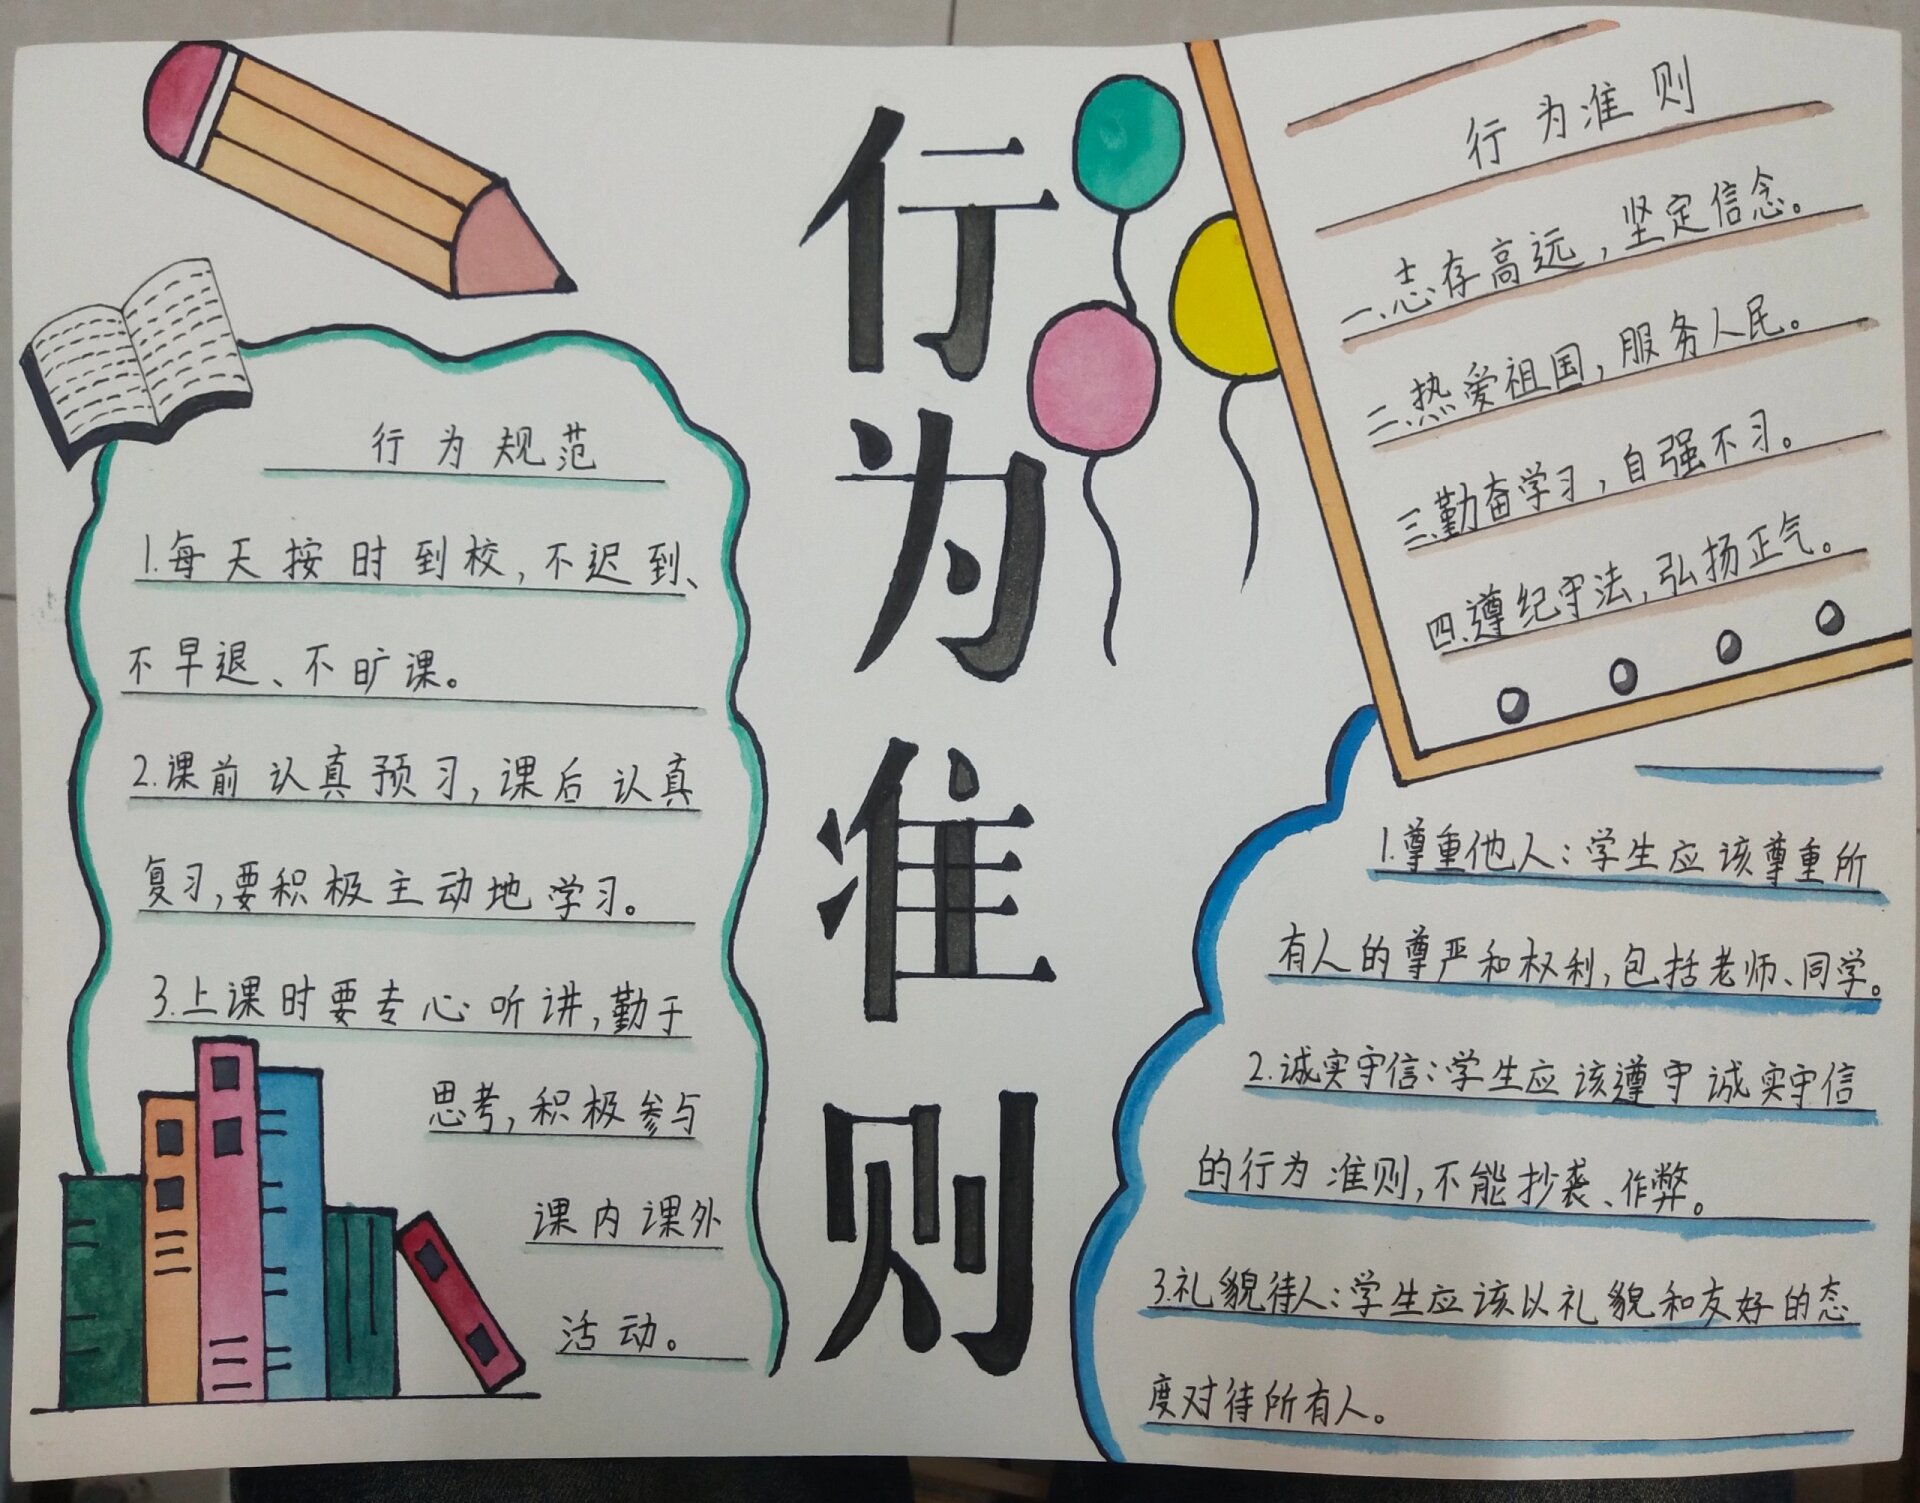 行为准则
行为规范
1.每天按时到校,不迟到、
不早退、不旷课。
2.课前认真预习,课后认真
复习,要积极主动地学习。
3.上课时要专心听讲,勤于
思考,积极参与
课内课外
活动。
行为准则
一.志存高远,坚定信念。
二.热爱祖国,服务人民。
三.勤奋学习,自强不习。
四.遵纪守法,弘扬正气。
1.尊重他人:学生应该尊重所
有人的尊严和权利,包括老师、同学。
2.诚实守信:学生应该遵守诚实守信
的行为准则,不能抄袭、作弊。
3.礼貌待人:学生应该以礼貌和友好的态
度对待所有人。